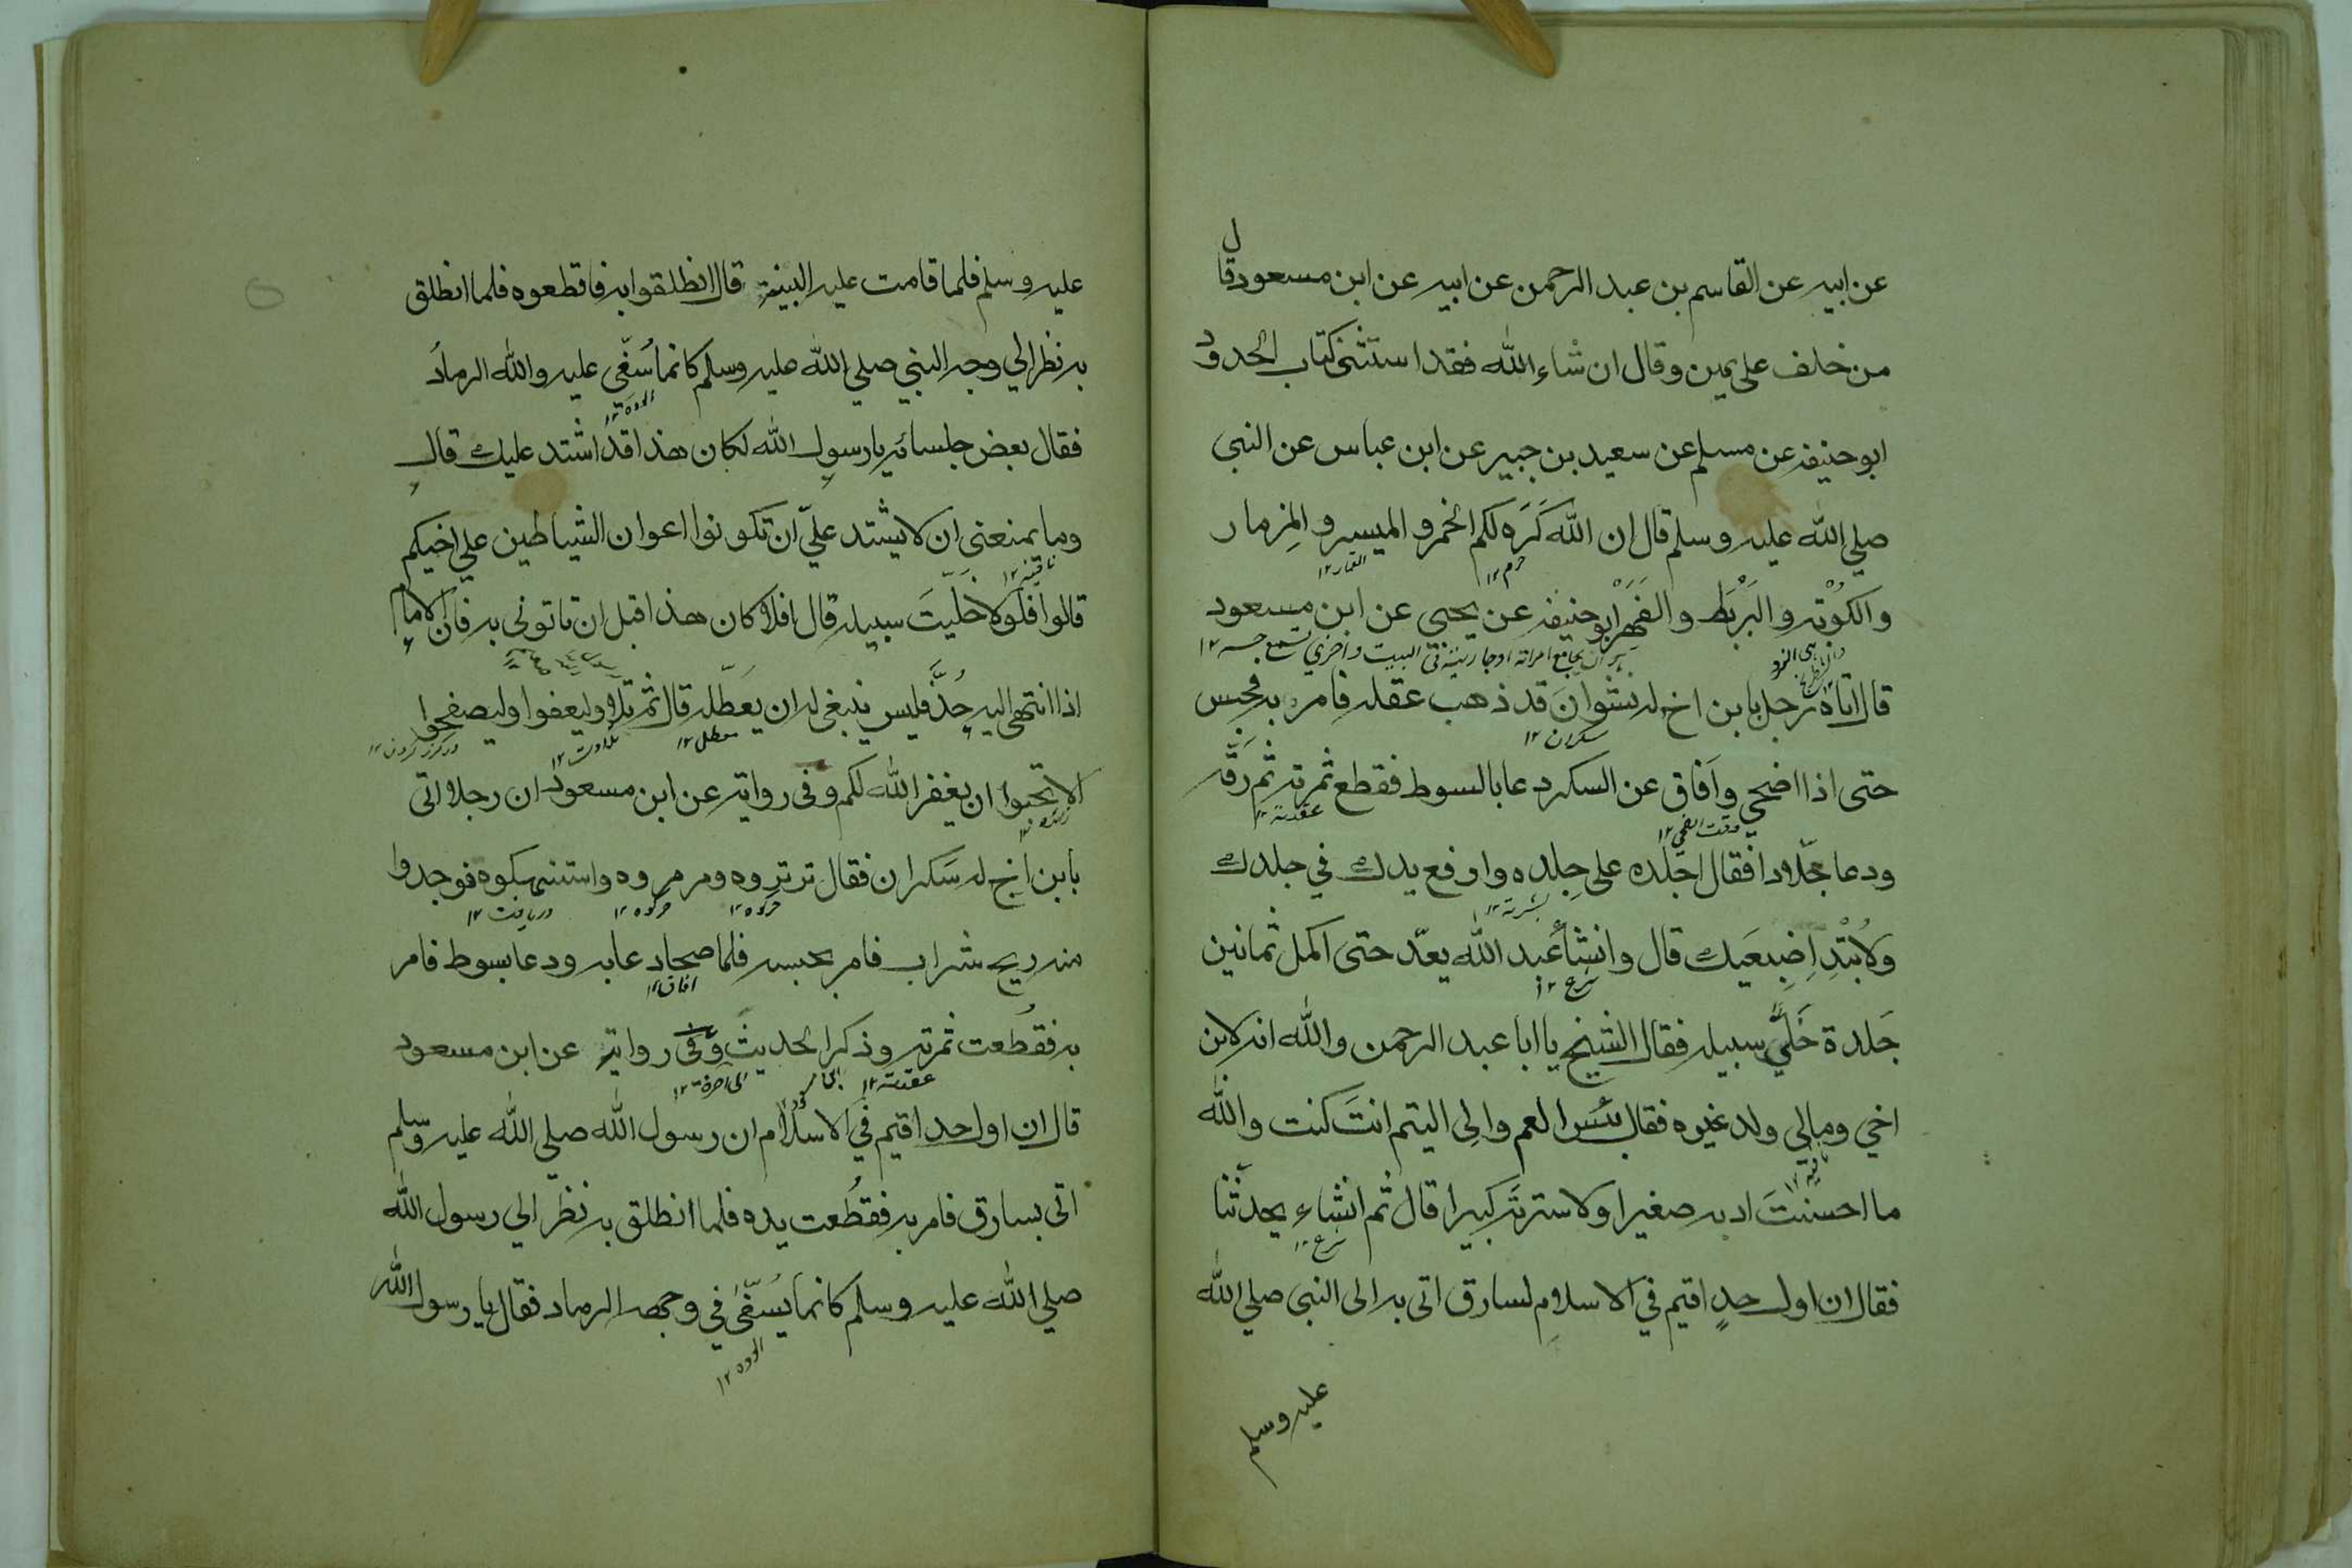 عن ابيه عن القاسم بن عبد الرحمن عن ابيه عن ابن مسعود قال
من حلف على يمين وقال ان شاء الله فقد استثنى كتاب الحدود
ابو حنيفه عن مسلم عن سعيد بن جبير عن ابن عباس عن النبي
صلي الله عليه وسلم قال ان الله كَرَه لكم الخمر و الميسر و المِزمار
حرم ١٢ القمار ١٢
والكُوْبَه و البَرْبَط و الفَهَرْ ابو حنيفه عن يحيي عن ابن مسعود
قال اتاه رجل بابن اخ له نشوانَ قد ذهب عقله فامر به فحبس
سكران ١٢
حتى اذا اضحي وافاق عن السكر دعا بالسوط فقطع ثمرته ثم رَقَّه
وقت الضحي ١٢ عقدته ١٢
ودعا جلّادا فقال اجلده على جِلده وارفع يدك في جلدك
بشرته ١٢
ولا تُبْدِ اِضبِعَيك قال وانشأ عبد الله يعدّ حتى اكمل ثمانين
شرع ١٢
جَلدة خَلّي سبيله فقال الشيخ يا ابا عبد الرحمن والله انه لابن
اخي ومالي ولد غيره فقال بئس العم والِى اليتم انتَ كنت والله
نافيه ١٢
ما احسنتَ ادبه صغيرا ولا سترته كبيرا قال ثم انشاء يحدثنا
شرع ١٢
فقال ان اول حدٍ اقيم في الاسلام لسارق اتى به الى النبي صلي الله
عليه وسلم
عليه وسلم فلما قامت عليه البينة قال انطلقوا به فاقطعوه فلما انطلق
به نظر الي وجه النبي صلي الله عليه وسلم كانما سُفّي عليه والله الرماد
فقال بعض جلسائه يا رسول الله لكان هذا قد اشتد عليك قال
وما يمنعنى ان لا يشتد عليّ ان تكونوا اعوان الشياطين علي اخيكم
نافيه ١٢
قالوا فلولا خَلّيتَ سبيله قال افلا كان هذا قبل ان تاتونى به فان الامام
اذا انتهى اليه حُدٌّ فليس ينبغى له ان يعَطّله قال ثم تلا وليعفوا وليصفحوا
معطل ١٢ تلاوت ١٢
الا تحبوا ان يغفر الله لكم و فى رواية عن ابن مسعود ان رجلا اتى
بابن اخ له سكران فقال ترتروه ومرمروه واستنهكوه فوجدوا
حركوه ١٢ حركوه ١٢ دريافت ١٢
منه ريح شراب فامر بحبسه فلما صحا دعا به ودعا بسوط فامر
افاق ١٢
به فقُطعت ثمرته وذكر الحديث وفى رواية عن ابن مسعود
عقدته ١٢ الى اخره ١٢
قال ان اول حد اقيم في الاسلام ان رسول الله صلي الله عليه وسلم
اتى بسارق فامر به فقُطعت يده فلما انطلق به نظر الي رسول الله
صلي الله عليه وسلم كانما يُسَفّى في وجهه الرماد فقال يا رسول الله